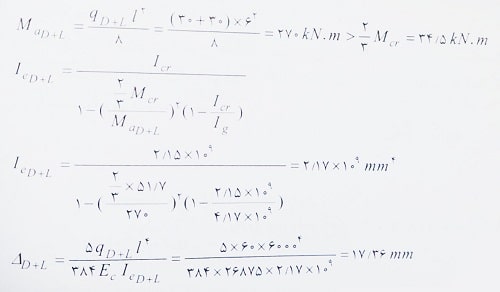 M_{aD+L} = \frac{q_{D+L} l^۲}{۸} = \frac{(۳۰+۳۰)×۶^۲}{۸} = ۲۷۰ kN.m > \frac{۲}{۳} M_{cr} = ۳۴/۵ kN.m
I_{eD+L} = \frac{I_{cr}}{۱-(\frac{\frac{۲}{۳} M_{cr}}{M_{aD+L}})^۲(۱-\frac{I_{cr}}{I_g})}
I_{eD+L} = \frac{۲/۱۵×۱۰^۹}{۱-(\frac{\frac{۲}{۳}×۵۱/۷}{۲۷۰})^۲(۱-\frac{۲/۱۵×۱۰^۹}{۴/۱۷×۱۰^۹})} = ۲/۱۷×۱۰^۹ mm^۴
Δ_{D+L} = \frac{۵q_{D+L} l^۴}{۳۸۴ E_c I_{eD+L}} = \frac{۵×۶۰×۶۰۰۰^۴}{۳۸۴×۲۶۸۷۵×۲/۱۷×۱۰^۹} = ۱۷/۳۶ mm